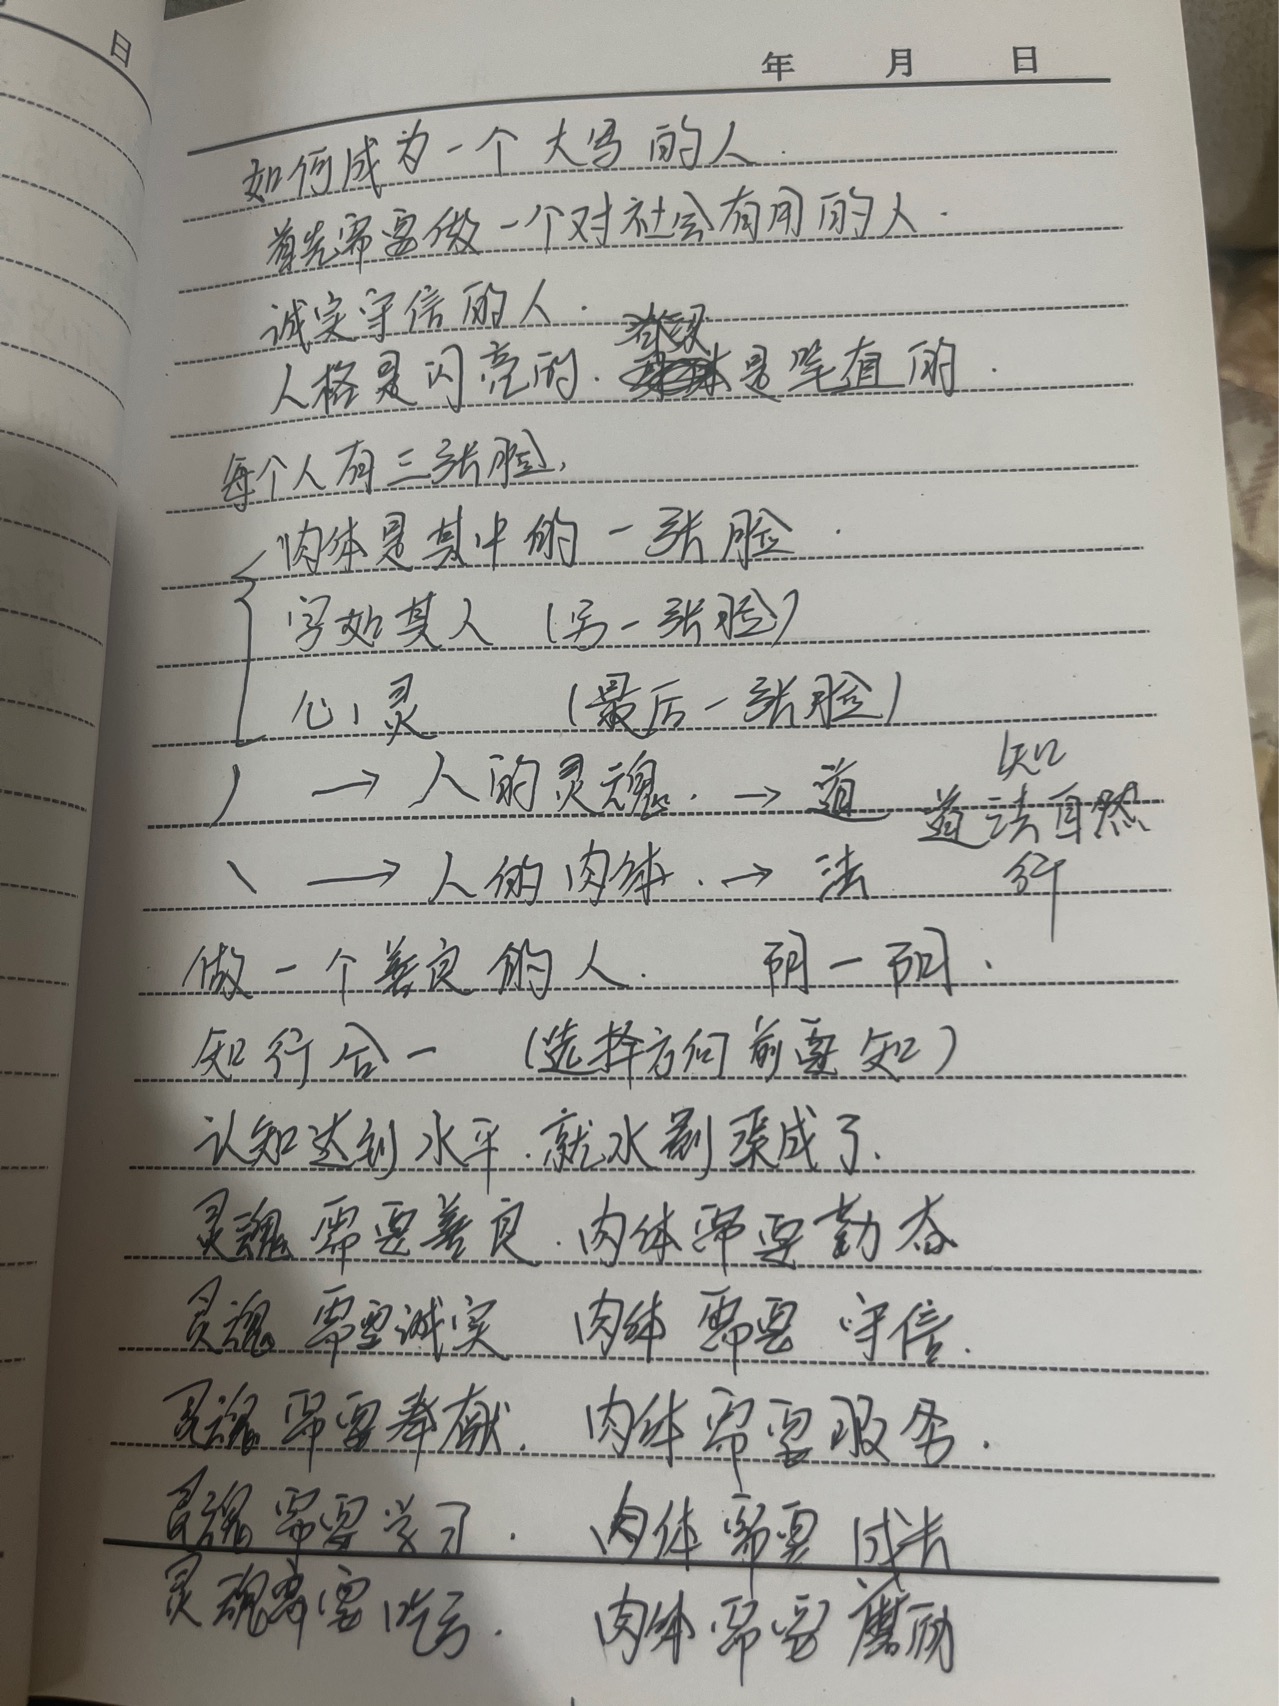 日
年 月 日
如何成为一个大写的人.
首先需要做一个对社会有用的人.
诚实守信的人.
人格是闪亮的. 是笔直的.
每个人有三张脸,
肉体是其中的一张脸.
字如其人 (另一张脸)
心灵 (最后一张脸)
丿 → 人的灵魂. → 道 知
道法自然
㇏ → 人的肉体. → 法 行
做一个善良的人. 阴一阳.
知行合一 (选择方向前要知)
认知达到水平.就水到渠成了.
灵魂需要善良.肉体需要勤奋
灵魂需要诚实 肉体需要守信.
灵魂需要奉献. 肉体需要服务.
灵魂需要学习. 肉体需要成长
灵魂需要吃亏. 肉体需要磨砺